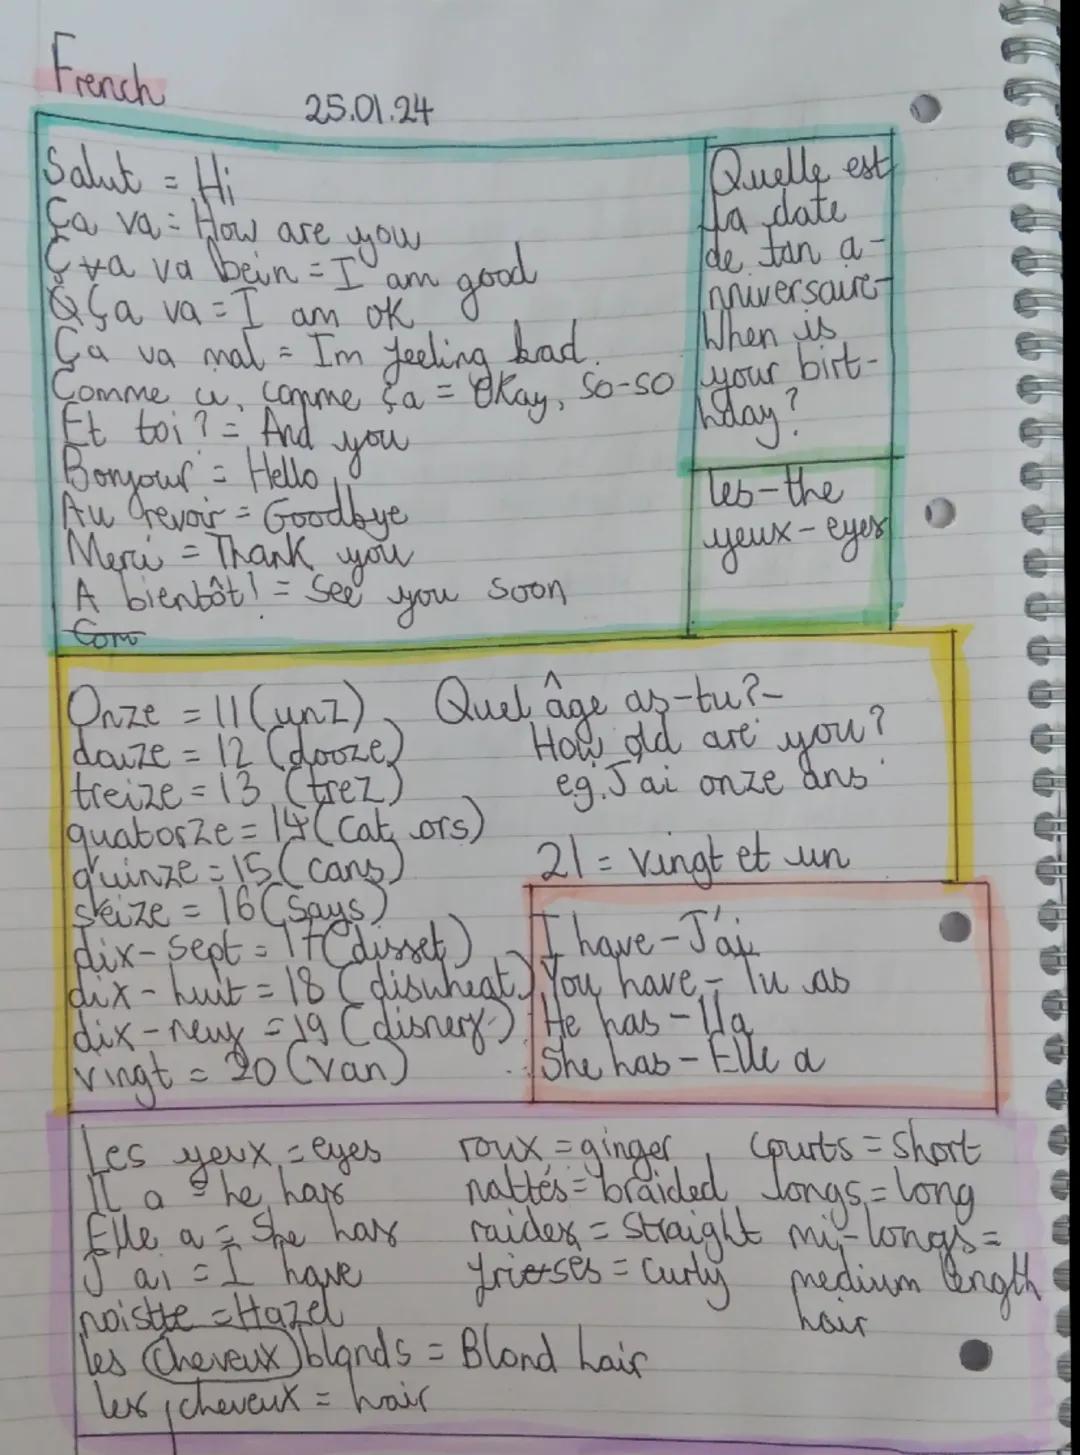 French
25.01.24
Salut = Hi
Ça va = How are you
Ç va va bein = I am good
Ça va = I am ok
Ça va mal = Im feeling bad.
Comme ci, comme ça = Okay, so-so
Et toi? = And you
Bonjour = Hello
Au revoir = Goodbye
Merci = Thank you
A bientôt! = See you soon
Com
Quelle est
la date
de tan a-
nniversaire-
When is
your birt-
hday?
les-the
yeux-eyes
Onze = 11 (unz)
douze = 12 (dooze)
treize = 13 (trez)
quatorze = 14 (cat ors)
quinze = 15 (cans)
seize = 16 (says)
dix-sept = 17 (disset)
dix-huit = 18 (disuheat)
dix-neuf = 19 (disnerf)
vingt = 20 (van)
Quel âge as-tu?-
How old are you?
eg. J'ai onze ans
21 = vingt et un
I have - J'ai
You have - Tu as
He has - Il a
She has - Elle a
Les yeux = eyes
Il a = he has
Elle a = She has
J'ai = I have
noistte = Hazel
les cheveux blonds = Blond hair
les cheveux = hair
roux = ginger
nattés = braided
raides = straight
frisés = curly
courts = short
longs = long
mi-longs =
medium length
hair